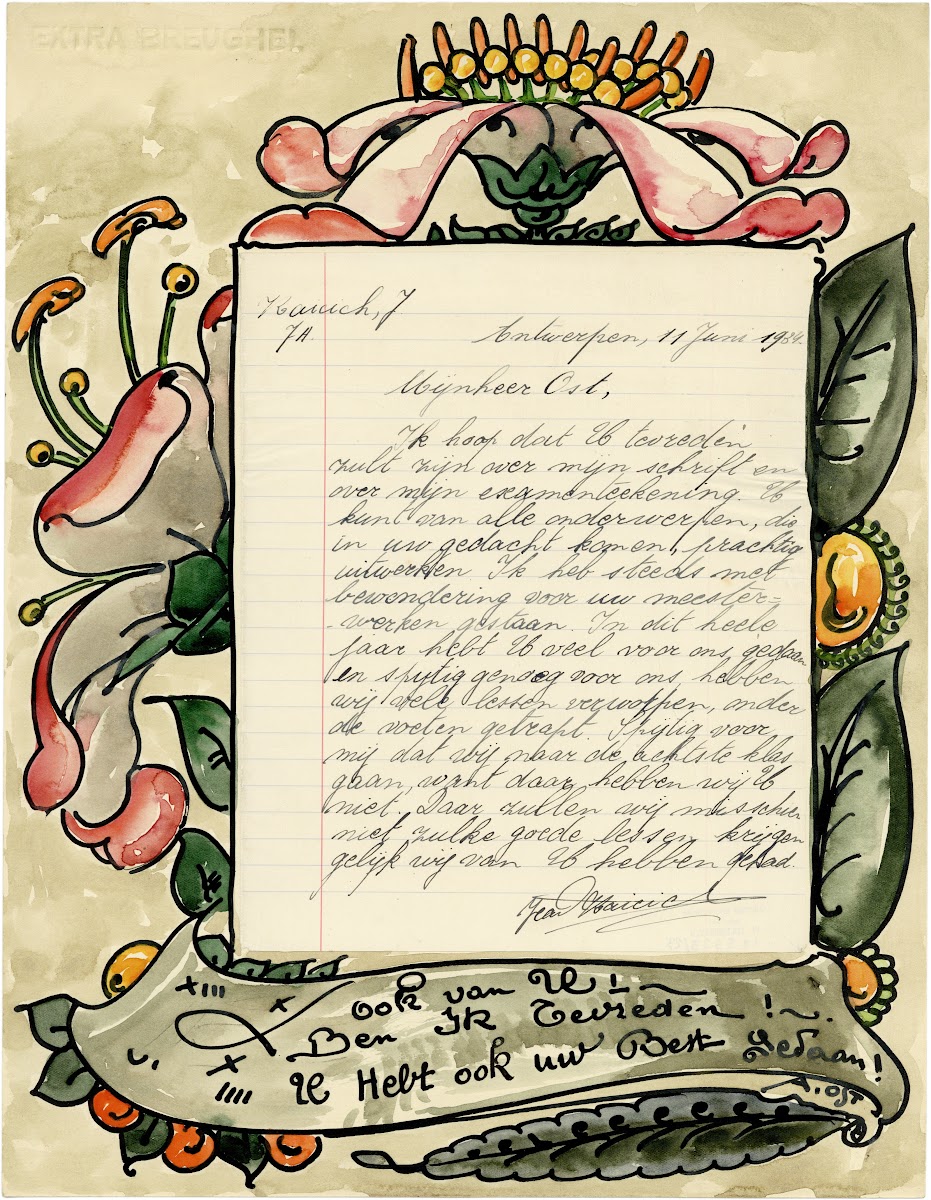 EXTRA BREUGHEL
Karicich, J
7A.
Antwerpen, 11 Juni 1934.
Mijnheer Ost,
Ik hoop dat U tevreden
zult zijn over mijn schrift en
over mijn examenteekening. U
kunt van alle onderwerpen, die
in uw gedacht komen, prachtig
uitwerken. Ik heb steeds met
bewondering voor uw meester=
-werken gestaan. In dit heele
jaar hebt U veel voor ons gedaan
en spijtig genoeg voor ons, hebben
wij vele lessen verworpen, onder
de voeten getrapt. Spijtig voor
mij dat wij naar de achtste klas
gaan, want daar hebben wij U
niet. Daar zullen wij misschien
niet zulke goede lessen krijgen
gelijk wij van U hebben gehad.
Jean
ook van U!
Ben Ik Tevreden !
U Hebt ook uw Best Gedaan!
A. OST